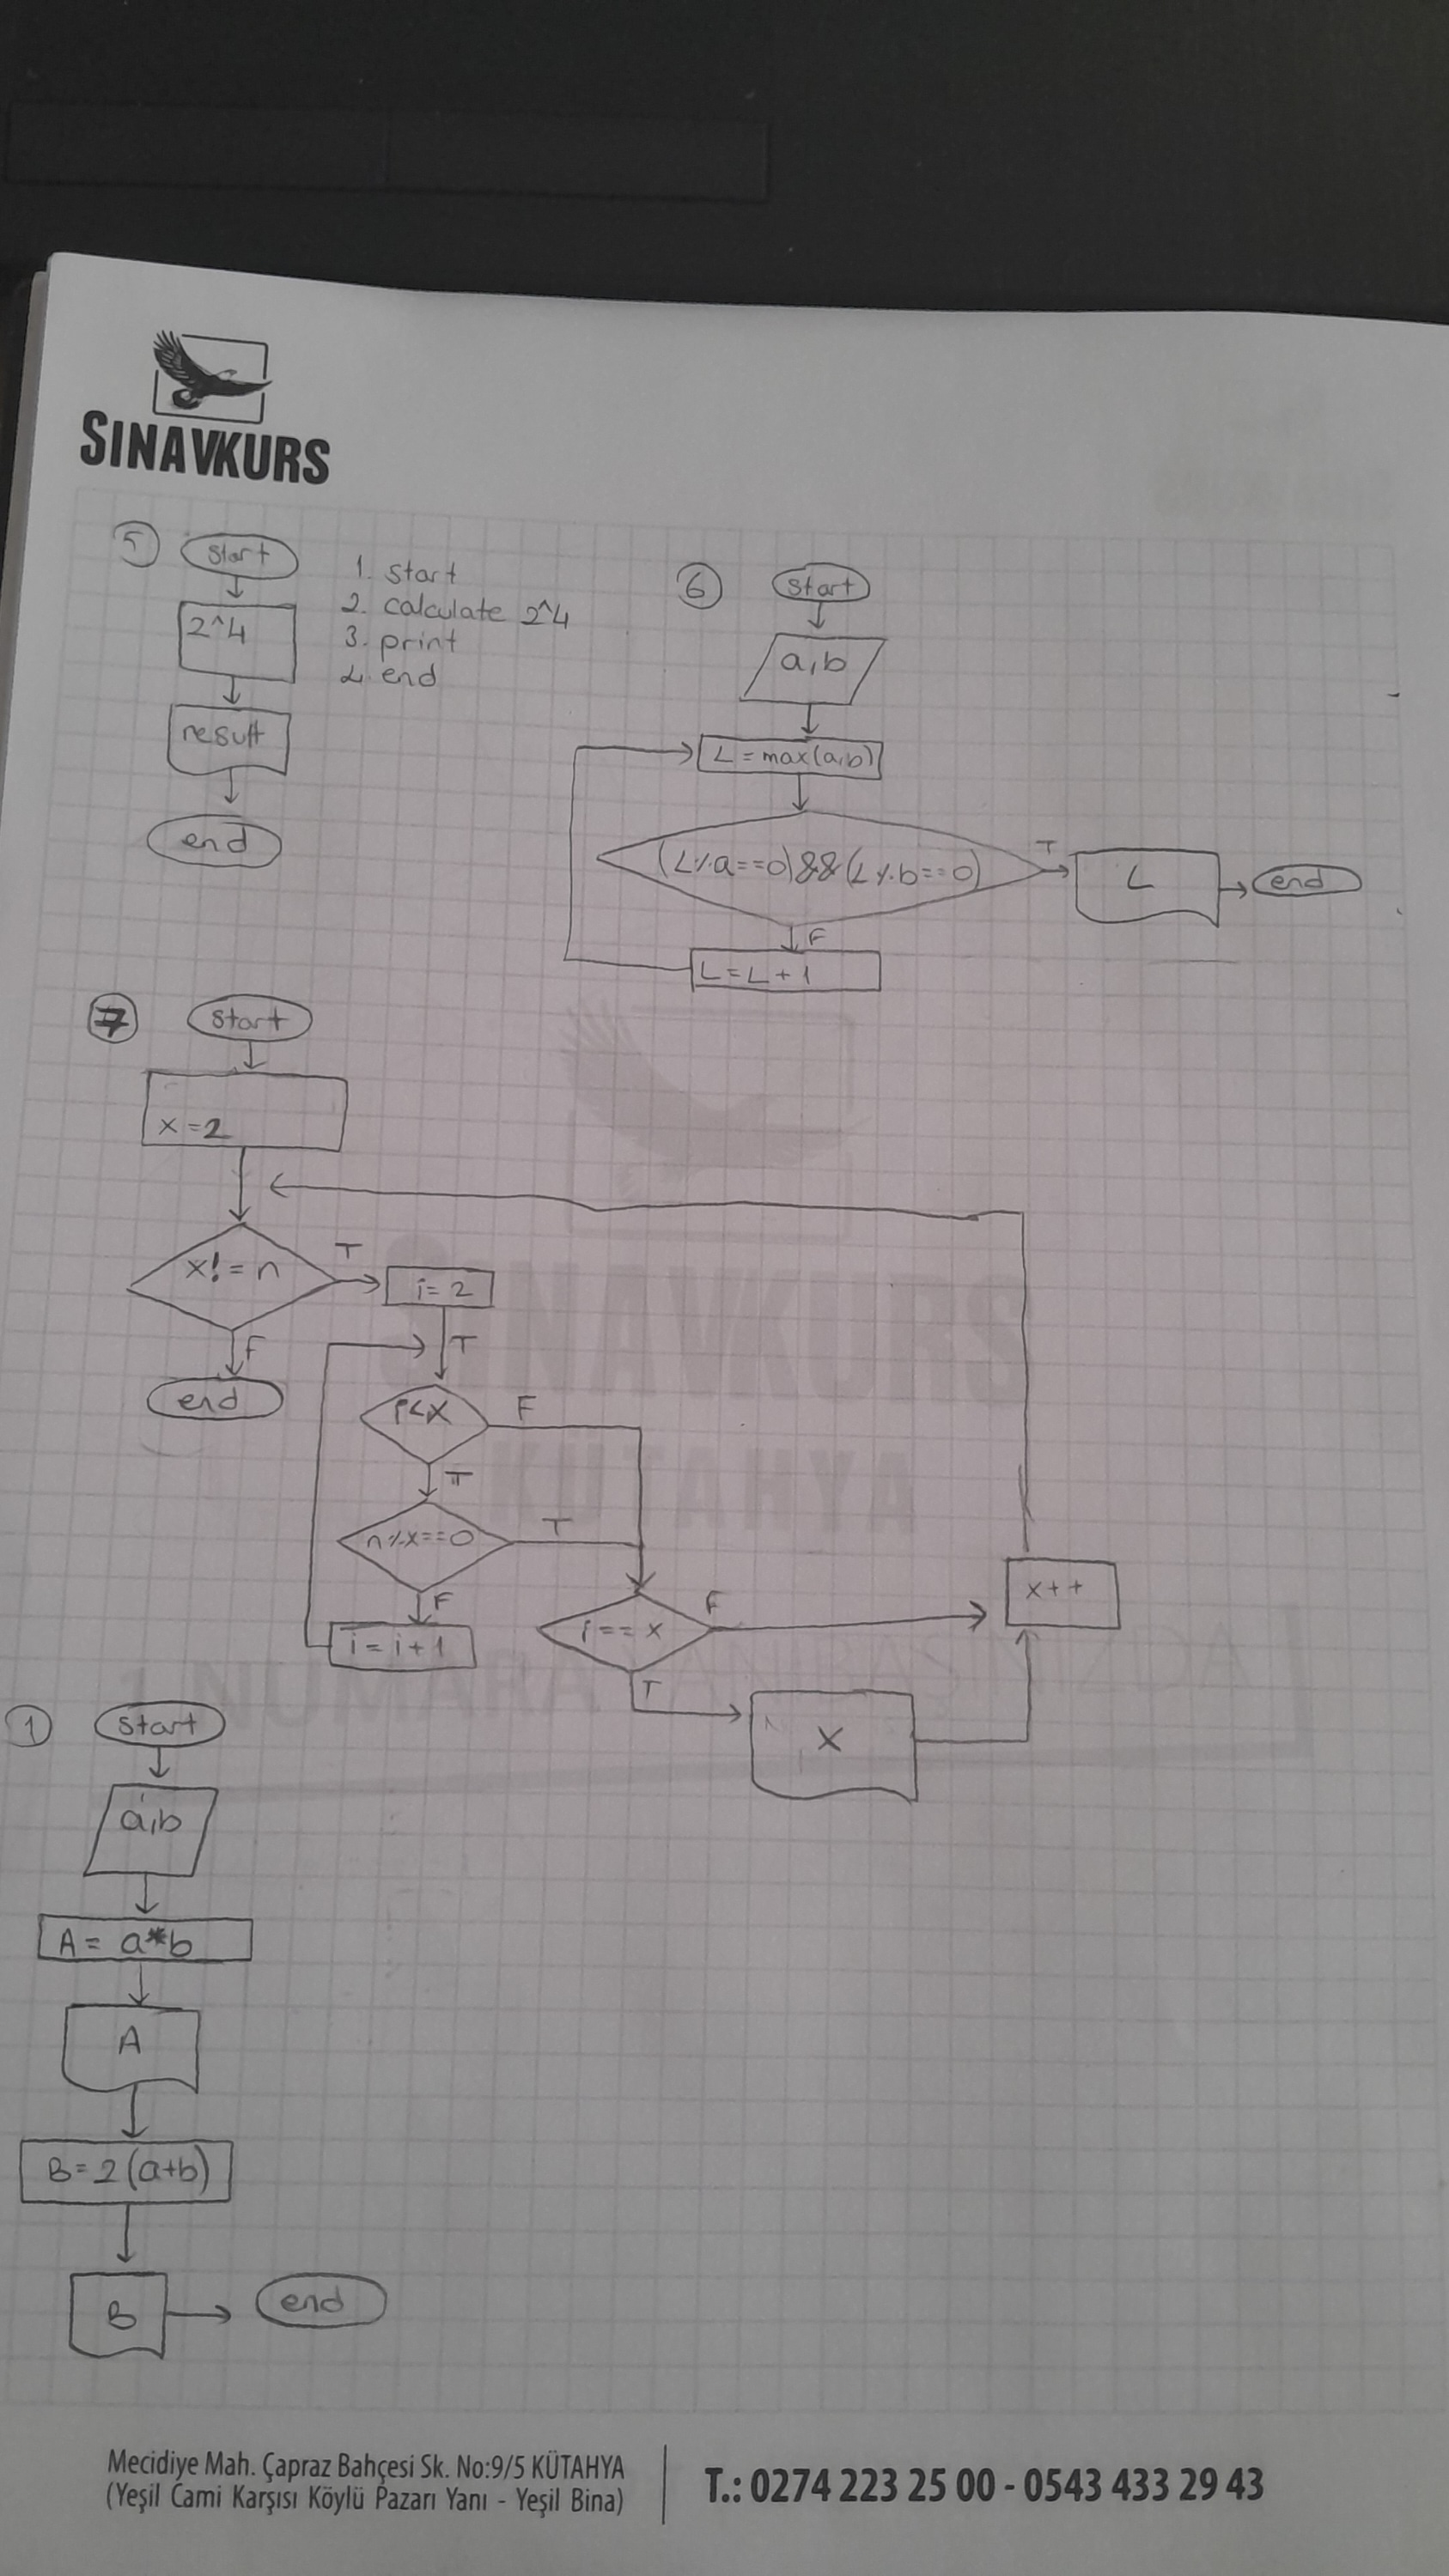 SINAVKURS
5
start
2^4
result
end
1. start
2. calculate 2^4
3. print
4. end
6
start
a,b
L = max(a,b)
(L%a==0)&&(L%b==0)
T
L
end
F
L=L+1
7
start
x=2
x!=n
T
i=2
F
end
T
i<x
F
T
n%x==0
T
F
i=i+1
i==x
F
x++
T
X
SINAVKURS
KÜTAHYA
1 NUMARA
1
start
a,b
A= a*b
A
B=2(a+b)
B
end
Mecidiye Mah. Çapraz Bahçesi Sk. No:9/5 KÜTAHYA
(Yeşil Cami Karşısı Köylü Pazarı Yanı - Yeşil Bina)
T.: 0274 223 25 00 - 0543 433 29 43